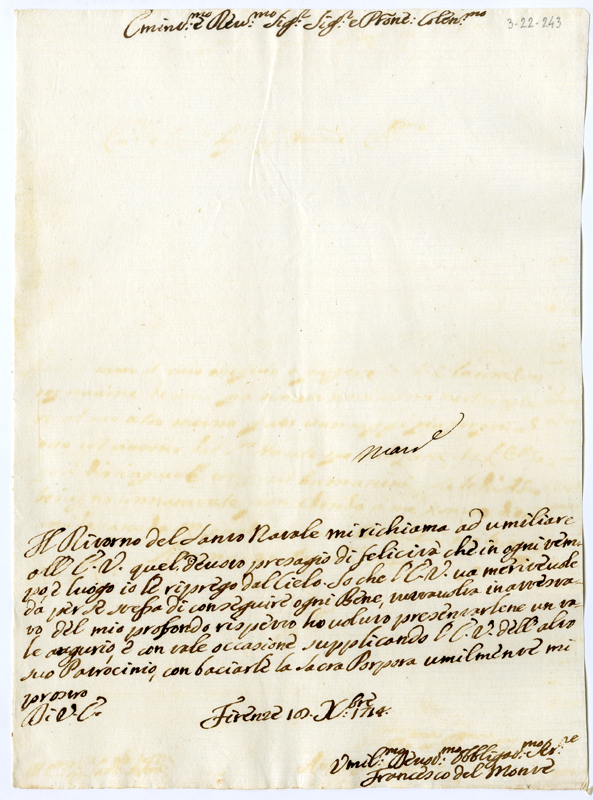 Emin.mo e Reu.mo Sig.r Sig.r e Prōne: Colen.mo
3-22-243
Il Ritorno del Santo Natale mi richiama ad umiliare
all' E. V. quel deuoto presagio di felicità che in ogni tem-
po e luogo io le riprego dal Cielo. So che l'E. V. va meriteuole
da per se stessa di conseguire ogni Bene, tuttauolta in attesta-
to del mio profondo rispetto ho uoluto presentarlene un ta-
le augurio, e con tale occasione supplicando l'E. V. dell'alto
suo Patrocinio, con baciarle la Sacra Porpora umilmente mi
protesto
Di V. E.
Firenze 10. X.bre 1714.
Vmil.mo Deuot.mo Obbligat.mo Ser.re
Francesco del Monte